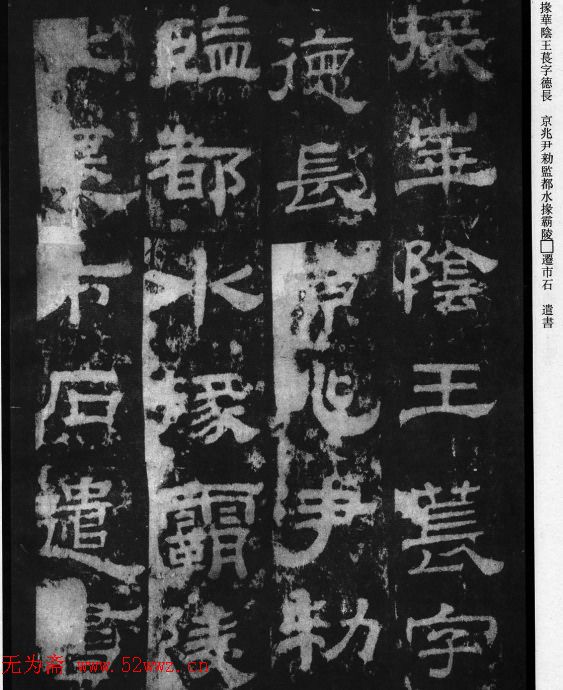 掾華陰王萇字德長 京兆尹勑監都水掾霸陵□遷市石 遣書
掾華陰王萇字
德長京兆尹勑
監都水掾霸陵
遷市石遣書
无为斋 www.52wwz.cn